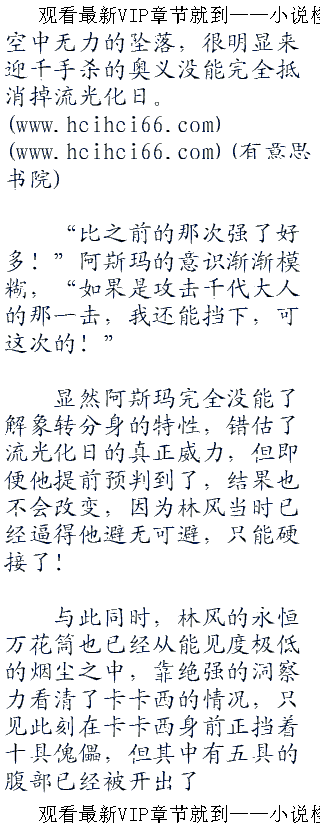 观看最新VIP章节就到——小说检
空中无力的坠落，很明显来
迎千手杀的奥义没能完全抵
消掉流光化日。
(www.hcihci66.com)
(www.hcihci66.com)(有意思
书院)
“比之前的那次强了好
多！”阿斯玛的意识渐渐模
糊，“如果是攻击千代大人
的那一击，我还能挡下，可
这次的！”
显然阿斯玛完全没能了
解象转分身的特性，错估了
流光化日的真正威力，但即
便他提前预判到了，结果也
不会改变，因为林风当时已
经逼得他避无可避，只能硬
接了！
与此同时，林风的永恒
万花筒也已经从能见度极低
的烟尘之中，靠绝强的洞察
力看清了卡卡西的情况，只
见此刻在卡卡西身前正挡着
十具傀儡，但其中有五具的
腹部已经被开出了
观看最新VIP章节就到——小说检